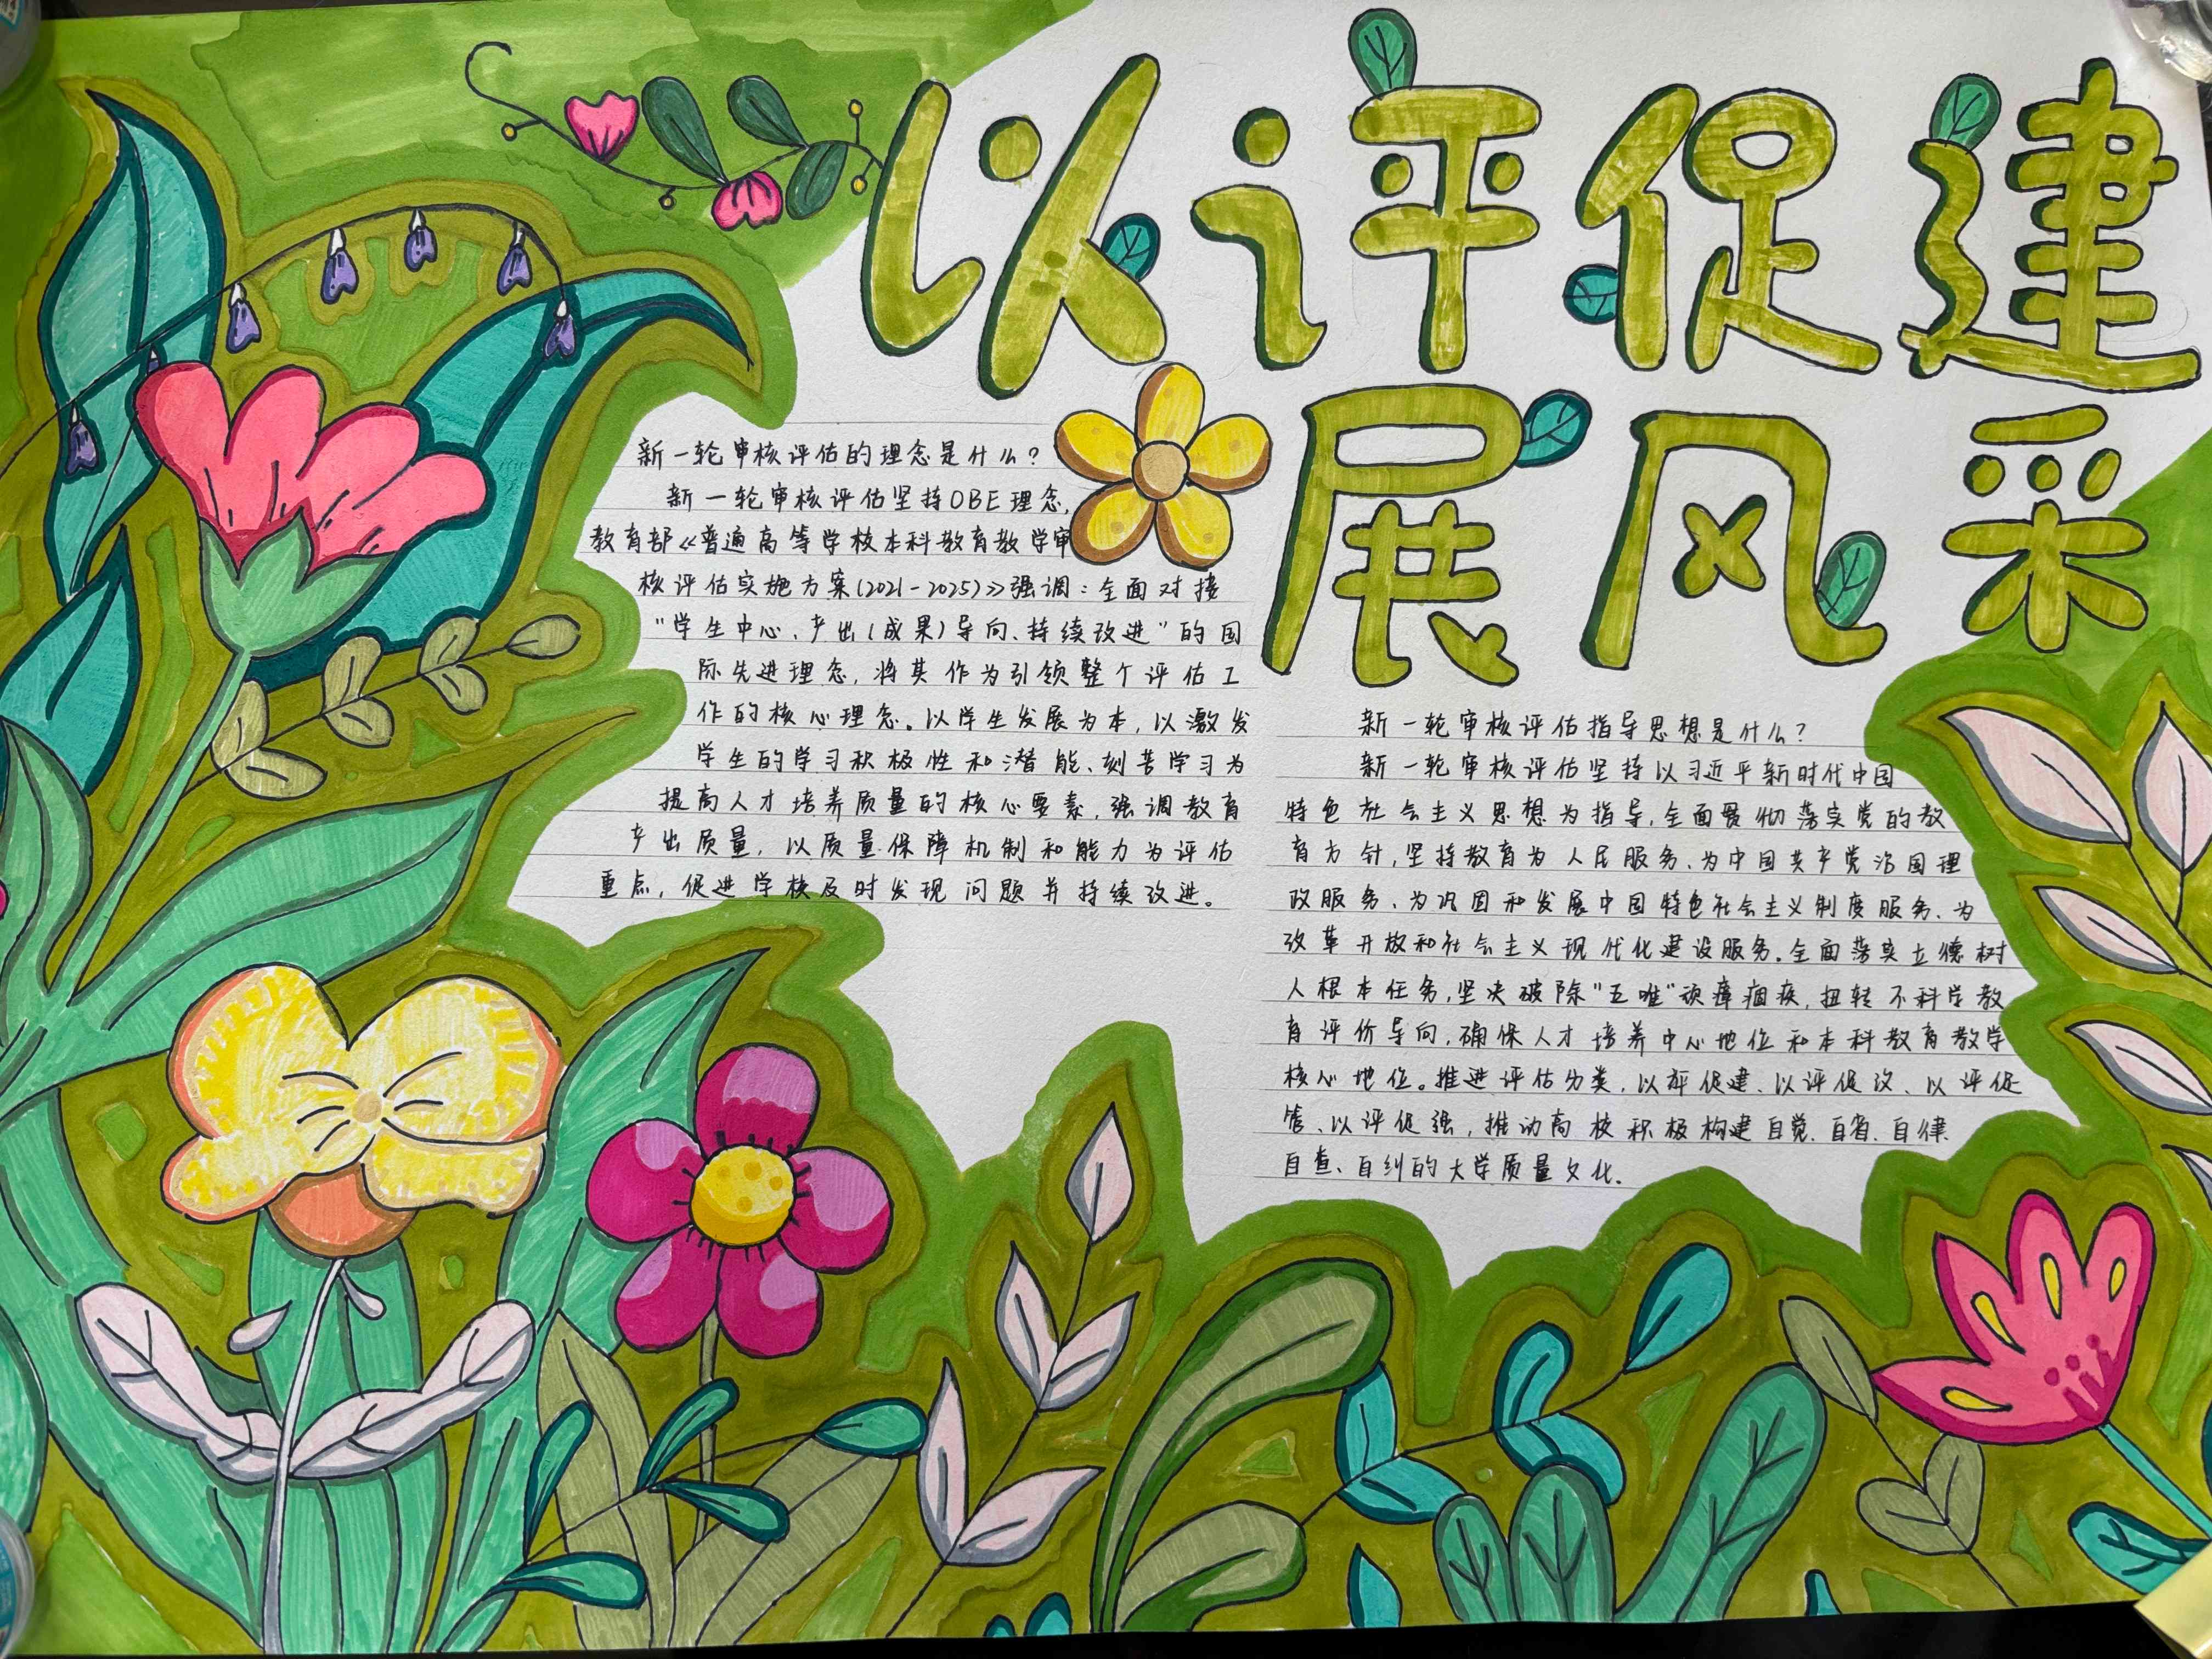 以评促建
展风采
新一轮审核评估的理念是什么?
新一轮审核评估坚持OBE理念,
教育部《普通高等学校本科教育教学审
核评估实施方案(2021-2025)》强调:全面对接
"学生中心、产出(成果)导向、持续改进"的国
际先进理念,将其作为引领整个评估工
作的核心理念。以学生发展为本,以激发
学生的学习积极性和潜能、刻苦学习为
提高人才培养质量的核心要素,强调教育
产出质量,以质量保障机制和能力为评估
重点,促进学校及时发现问题并持续改进。
新一轮审核评估指导思想是什么?
新一轮审核评估坚持以习近平新时代中国
特色社会主义思想为指导,全面贯彻落实党的教
育方针,坚持教育为人民服务、为中国共产党治国理
政服务、为巩固和发展中国特色社会主义制度服务、为
改革开放和社会主义现代化建设服务。全面落实立德树
人根本任务,坚决破除"五唯"顽瘴痼疾,扭转不科学教
育评价导向,确保人才培养中心地位和本科教育教学
核心地位。推进评估分类,以评促建、以评促改、以评促
管、以评促强,推动高校积极构建自觉、自省、自律、
自查、自纠的大学质量文化.